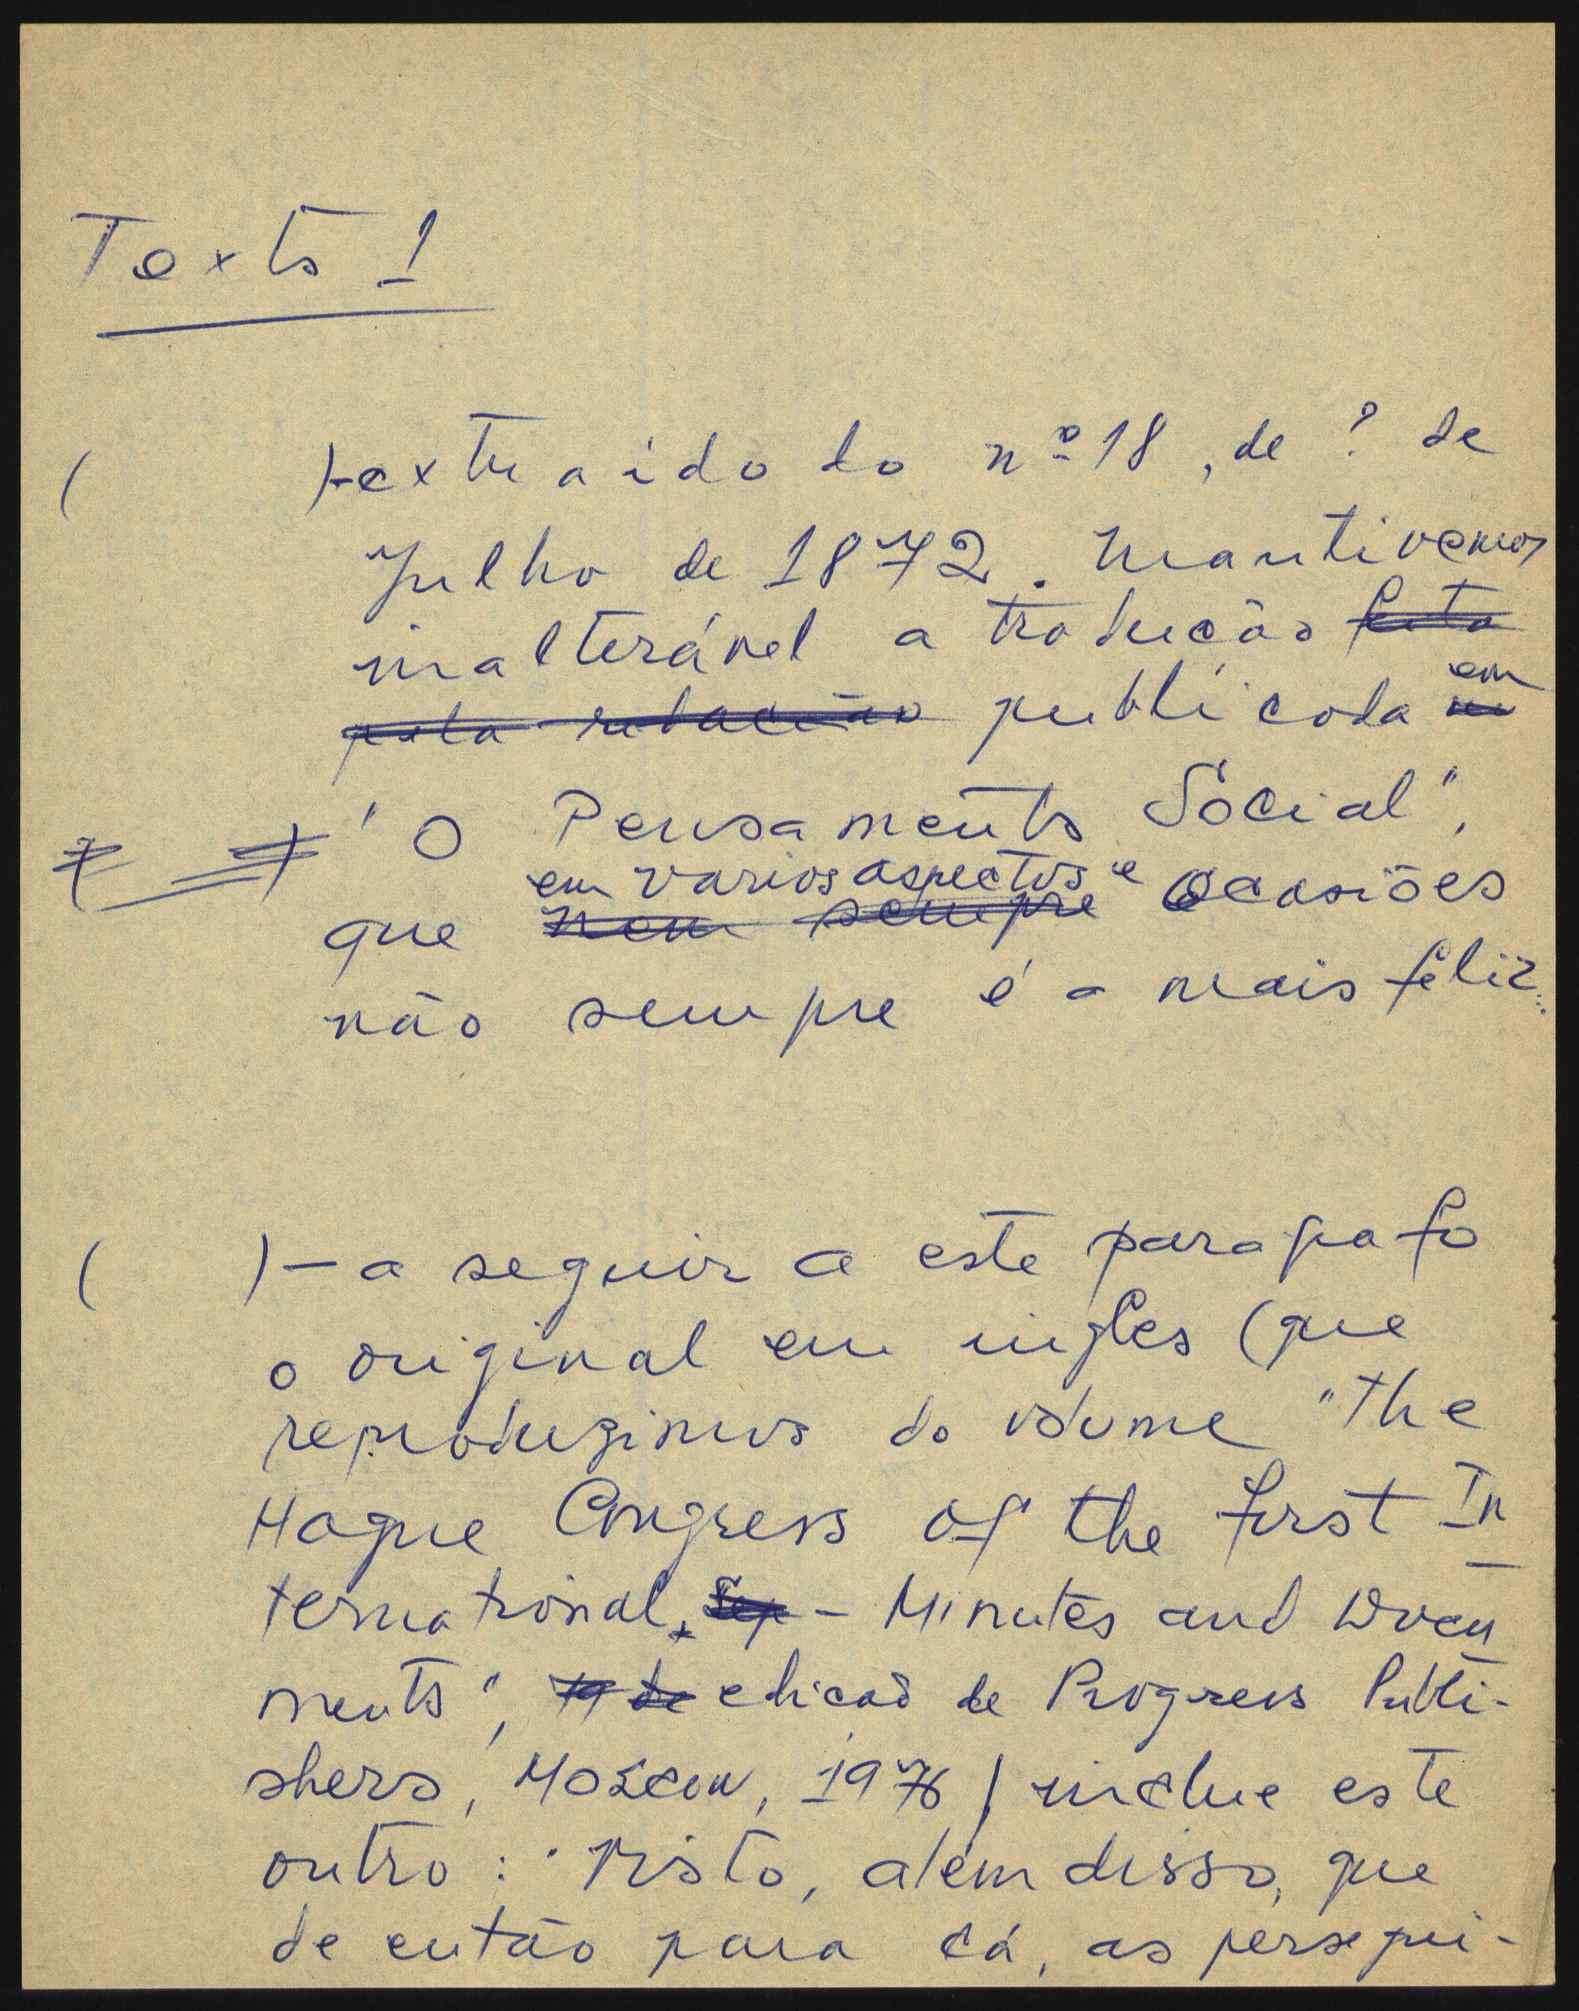 Texto 1
( )-extraido do nº 18, de ? de
Julho de 1872. Mantivemos
inalterável a tradução feita
pela redacção publicada em
"O Pensamento Social",
em varios aspectos e
que nem sempre ocasiões
não sempre é a mais feliz.
( ) - a seguir a este paragrafo
o original em ingles (que
reproduzimos do volume "The
Hague Congress of the First In
ternational, - Minutes and Docu
ments", edicão de Progress Publi-
shers, Moscow, 1976) inclue este
outro: "Visto, além disso, que
de então para cá, as persegui-